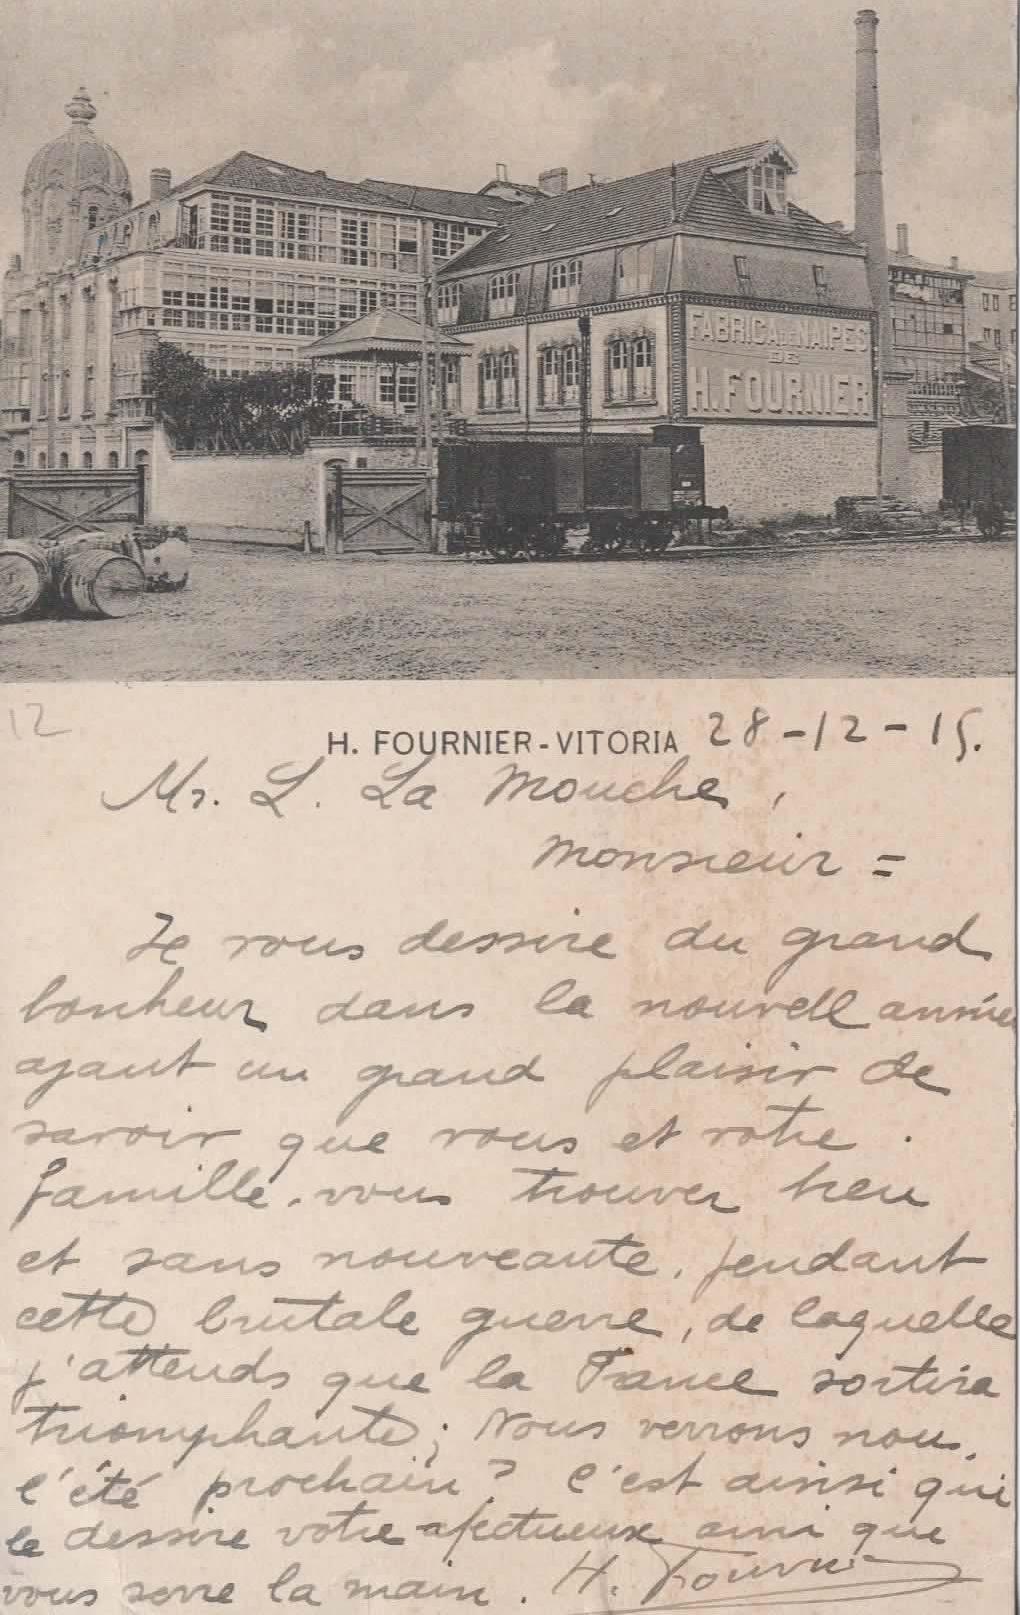 FABRICA DE NAIPES
DE
H. FOURNIER
12
H. FOURNIER - VITORIA 28-12-15.
Mr. L. La Mouche,
Monsieur =
Je vous dessire du grand
bonheur dans la nouvell année
ayant un grand plaisir de
savoir que vous et votre
famille. vous trouver bien
et sans nouveaute, pendant
cette brutale guerre, de laquelle
j'attends que la France sortira
triomphante; Nous verrons nous,
l'été prochain? C'est ainsi qui
le dessire votre afectueux ami que
vous serre la main. H. Fournier